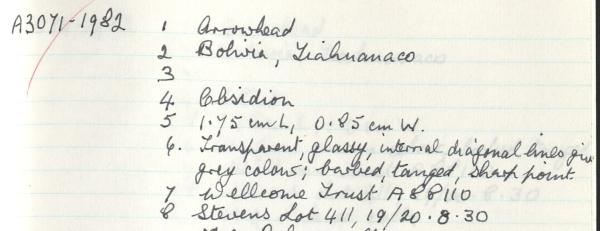 A3071-1982 1 Arrowhead
2 Bolivia, Tiahuanaco
3
4 Obsidion
5 1.75 cm L, 0.85 cm W.
6. Transparent, glassy, internal diagonal lines giv
grey colour; barbed, tanged, sharp point.
7 Wellcome Trust A88110
8 Stevens Lot 411, 19/20.8.30